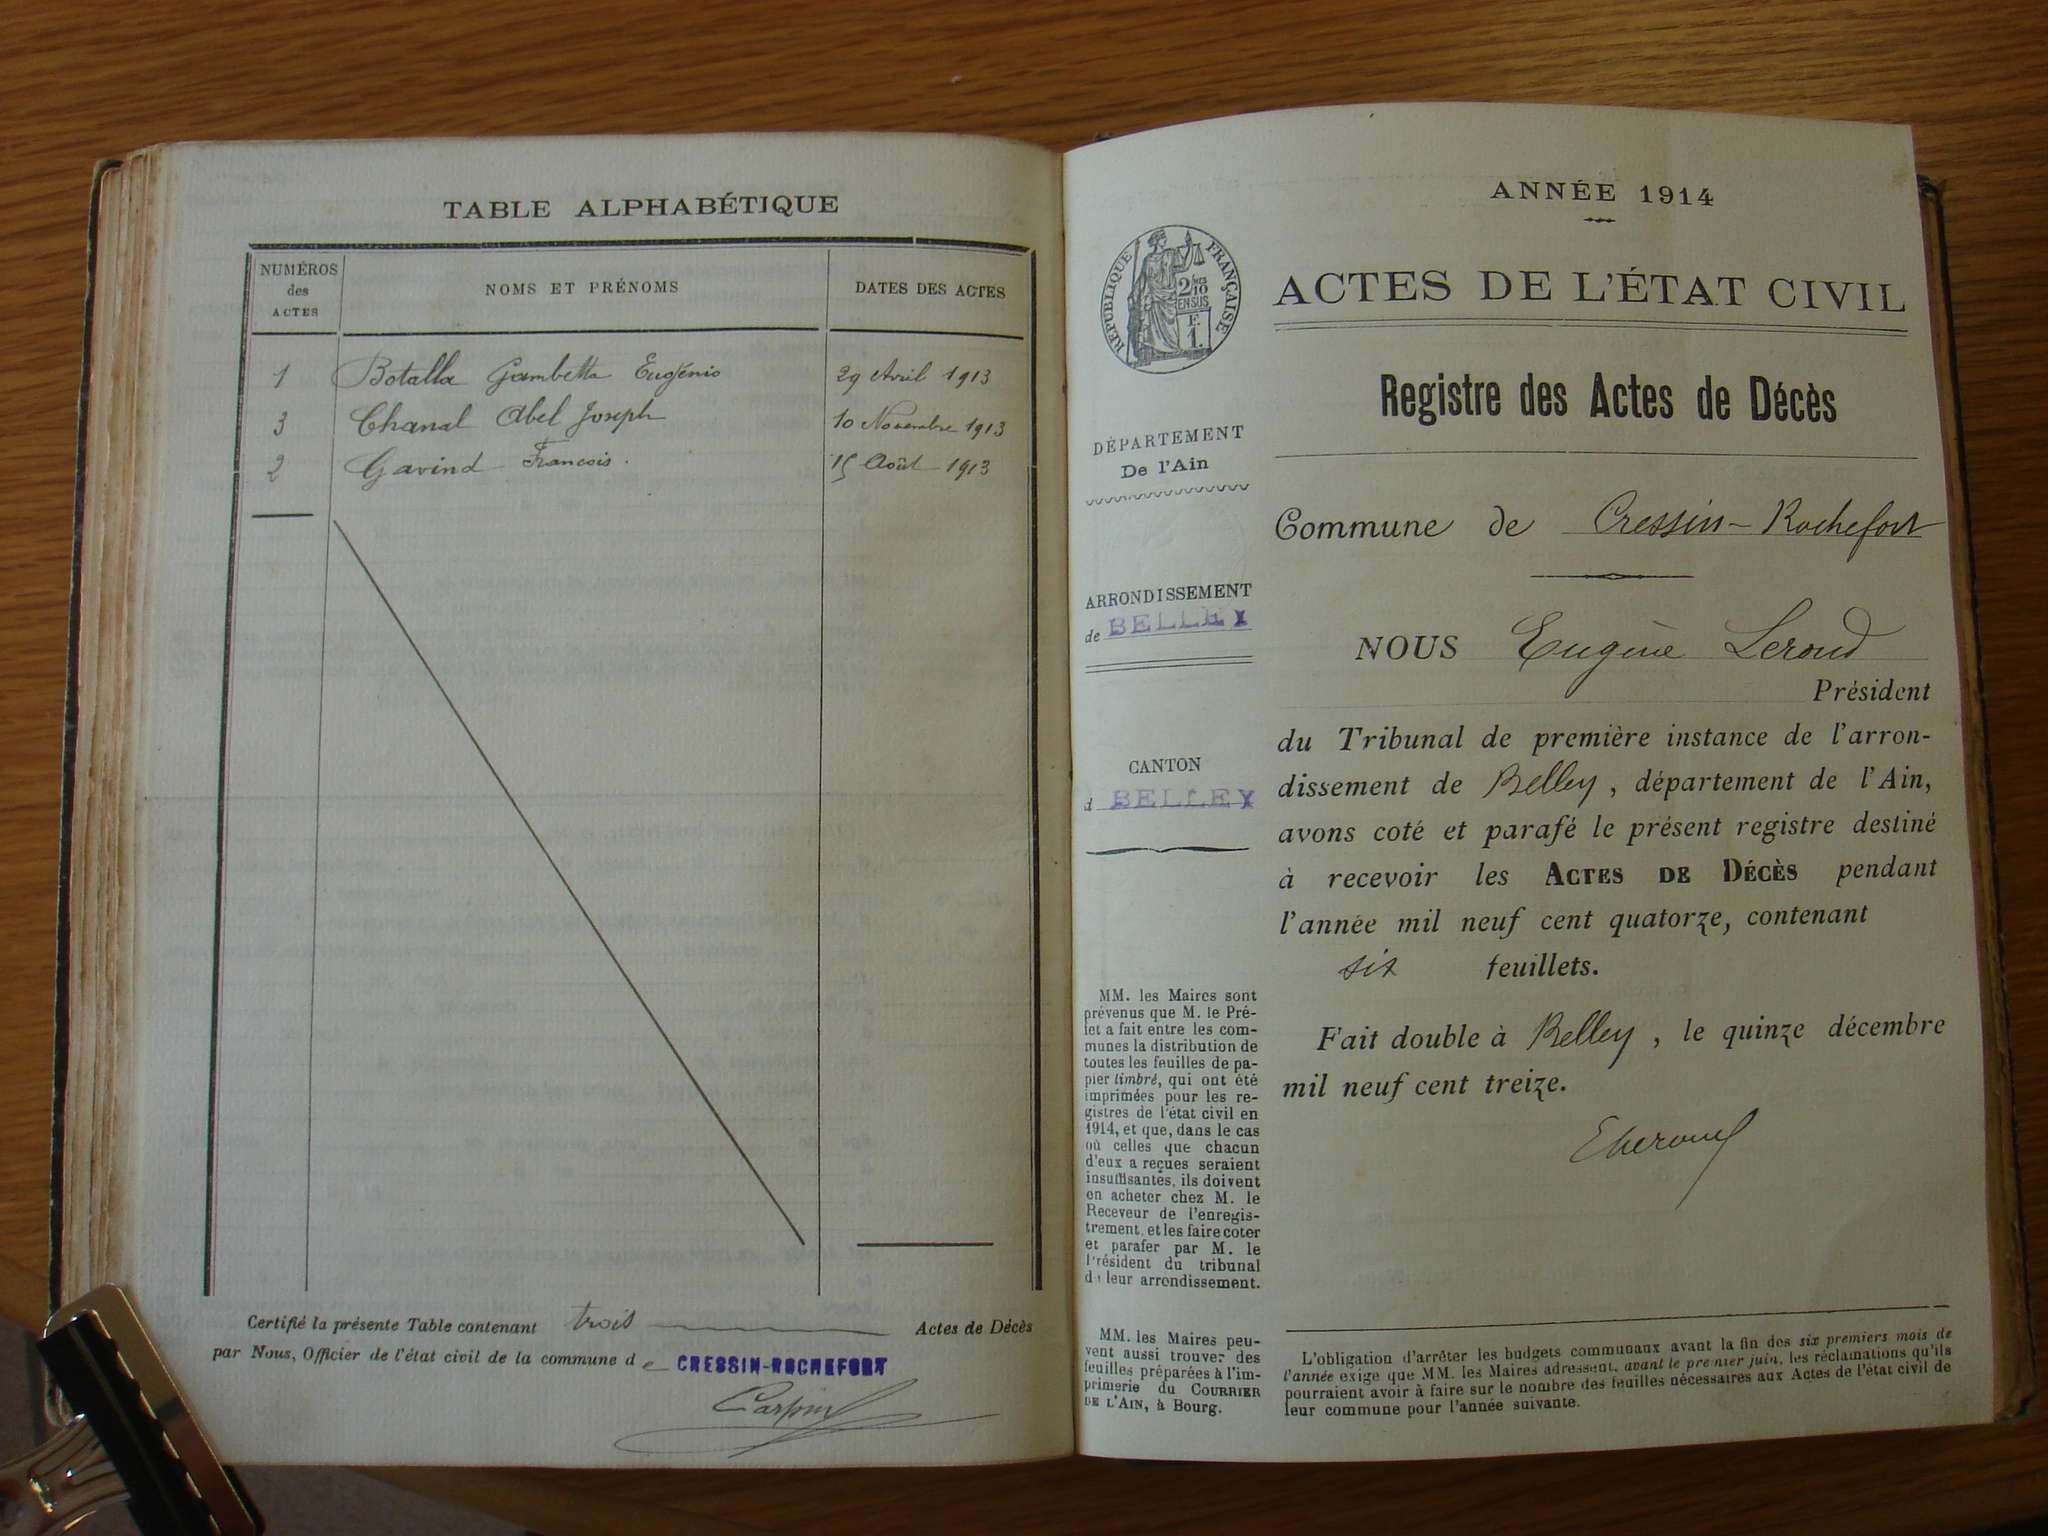 TABLE ALPHABÉTIQUE
NUMÉROS des ACTES
NOMS ET PRÉNOMS
DATES DES ACTES
1 Botalla Gambetta Eugénio 29 Avril 1913
3 Chanal Abel Joseph 10 Novembre 1913
2 Gavind François. 15 Août 1913
Certifié la présente Table contenant trois Actes de Décès
par Nous, Officier de l'état civil de la commune de CRESSIN-ROCHEFORT
RÉPUBLIQUE FRANÇAISE
2/10
EN SUS
F.
1.
DÉPARTEMENT
De l'Ain
ARRONDISSEMENT
de BELLEY
CANTON
d BELLEY
MM. les Maires sont
prévenus que M. le Pré-
fet a fait entre les com-
munes la distribution de
toutes les feuilles de pa-
pier timbré, qui ont été
imprimées pour les re-
gistres de l'état civil en
1914, et que, dans le cas
où celles que chacun
d'eux a reçues seraient
insuffisantes, ils doivent
en acheter chez M. le
Receveur de l'enregis-
trement, et les faire coter
et parafer par M. le
Président du tribunal
de leur arrondissement.
MM. les Maires peu-
vent aussi trouver des
feuilles préparées à l'im-
primerie du COURRIER
DE L'AIN, à Bourg.
ANNÉE 1914
ACTES DE L'ÉTAT CIVIL
Registre des Actes de Décès
Commune de Cressin-Rochefort
NOUS Eugène Leroud
Président
du Tribunal de première instance de l'arron-
dissement de Belley, département de l'Ain,
avons coté et parafé le présent registre destiné
à recevoir les ACTES DE DÉCÈS pendant
l'année mil neuf cent quatorze, contenant
six feuillets.
Fait double à Belley, le quinze décembre
mil neuf cent treize.
L'obligation d'arrêter les budgets communaux avant la fin des six premiers mois de
l'année exige que MM. les Maires adressent, avant le premier juin, les réclamations qu'ils
pourraient avoir à faire sur le nombre des feuilles nécessaires aux Actes de l'état civil de
leur commune pour l'année suivante.